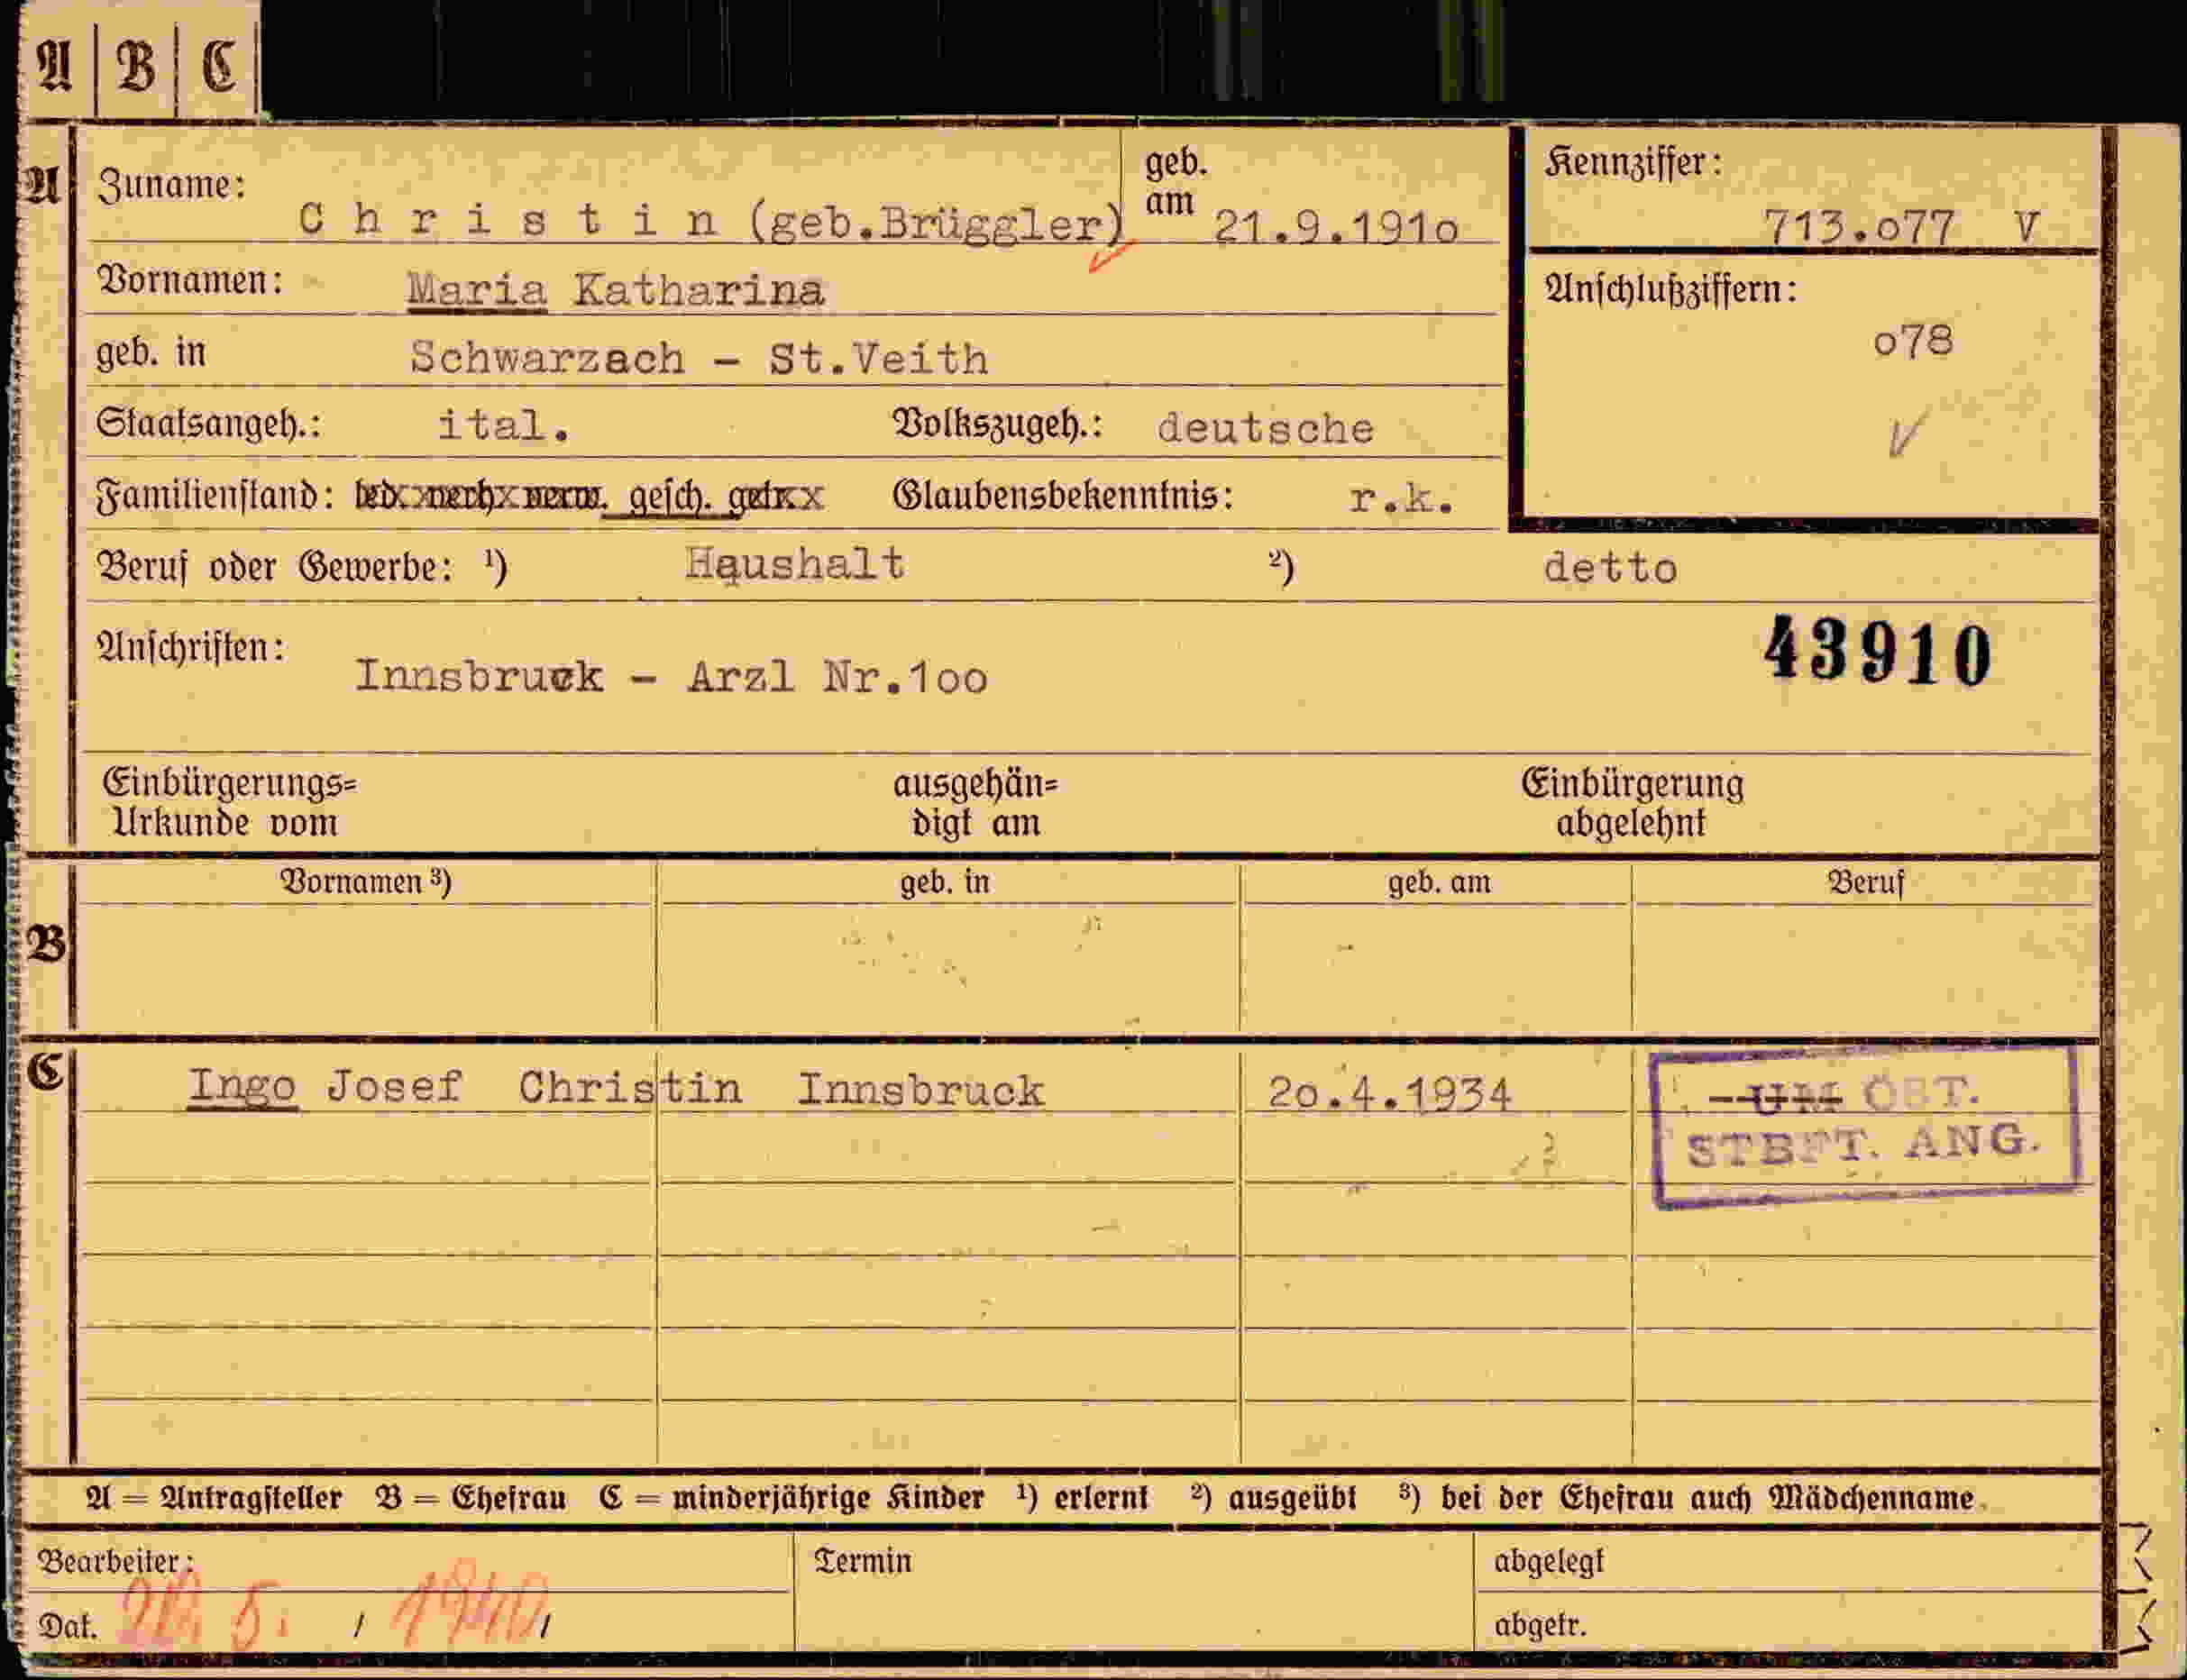 A B C
A Zuname: Christin (geb.Brüggler) geb. am 21.9.191o
Kennziffer: 713.o77 V
Vornamen: Maria Katharina
Anschlußziffern: o78 V
geb. in Schwarzach - St.Veith
Staatsangeh.: ital. Volkszugeh.: deutsche
Familienstand: led. verh. verw. gesch. getr. Glaubensbekenntnis: r.k.
Beruf oder Gewerbe: ¹) Haushalt ²) detto
43910
Anschriften: Innsbruck - Arzl Nr.1oo
Einbürgerungs= ausgehän= Einbürgerung
Urkunde vom digt am abgelehnt
B Vornamen ³) geb. in geb. am Beruf
C Ingo Josef Christin Innsbruck 2o.4.1934
UM ÖST.
STBFT. ANG.
A = Antragsteller B = Ehefrau C = minderjährige Kinder ¹) erlernt ²) ausgeübt ³) bei der Ehefrau auch Mädchenname
Bearbeiter: Termin abgelegt
Dat. 5. / 1940 / abgetr.